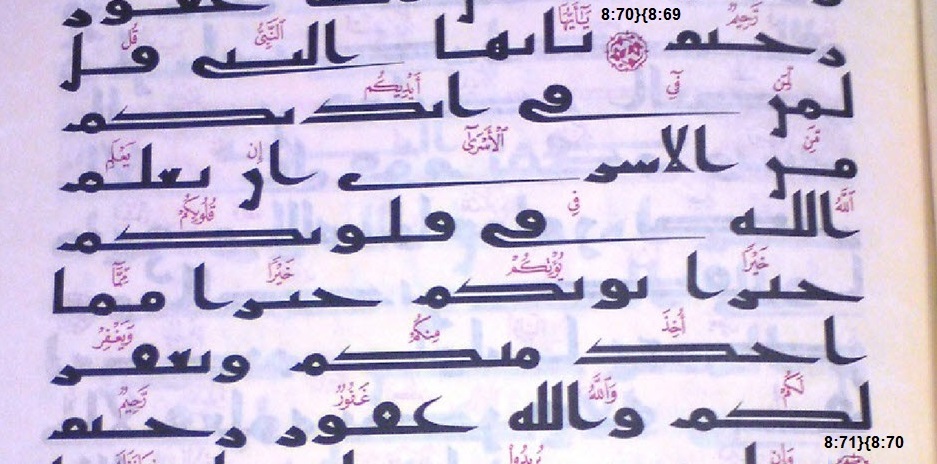 8:70}{8:69
رَّحِيمٌ يَٰٓأَيُّهَا ٱلنَّبِىُّ قُل
رحيم يايها النبي قل
لِّمَن فِىٓ أَيْدِيكُم
لمن في ايديكم
مِّنَ ٱلْأَسْرَىٰٓ إِن يَعْلَمِ
من الاسرى ان يعلم
ٱللَّهُ فِى قُلُوبِكُمْ
الله في قلوبكم
خَيْرًا يُؤْتِكُمْ خَيْرًا مِّمَّآ
خيرا يوتكم خيرا مما
أُخِذَ مِنكُمْ وَيَغْفِرْ
اخذ منكم ويغفر
لَكُمْ وَٱللَّهُ غَفُورٌ رَّحِيمٌ
لكم والله غفور رحيم
8:71}{8:70
وَإِن يُرِيدُوا۟